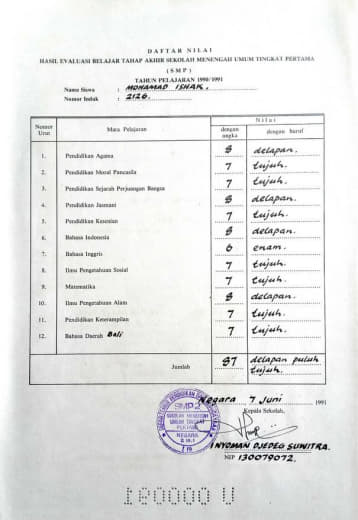 DAFTAR NILAI
HASIL EVALUASI BELAJAR TAHAP AKHIR SEKOLAH MENENGAH UMUM TINGKAT PERTAMA
(SMP)
TAHUN PELAJARAN 1990/1991
Nama Siswa : MOHAMAD ISHAK.
Nomor Induk : 2126.
Nomor Urut Mata Pelajaran Nilai
dengan angka dengan huruf
1. Pendidikan Agama 8 delapan.
2. Pendidikan Moral Pancasila 7 tujuh.
3. Pendidikan Sejarah Perjuangan Bangsa 7 tujuh.
4. Pendidikan Jasmani 8 delapan.
5. Pendidikan Kesenian 7 tujuh.
6. Bahasa Indonesia 8 delapan.
7. Bahasa Inggris 6 enam.
8. Ilmu Pengetahuan Sosial 7 tujuh.
9. Matematika 7 tujuh.
10. Ilmu Pengetahuan Alam 8 delapan.
11. Pendidikan Keterampilan 7 tujuh.
12. Bahasa Daerah Bali 7 tujuh.
Jumlah 87 delapan puluh
tujuh.
Negara 7 Juni 1991
Kepala Sekolah,
SMP 2
SEKOLAH MENENGAH
UMUM TINGKAT
PERTAMA
NEGARA
I NYOMAN DJEDEG SUWITRA.
NIP 130079072.